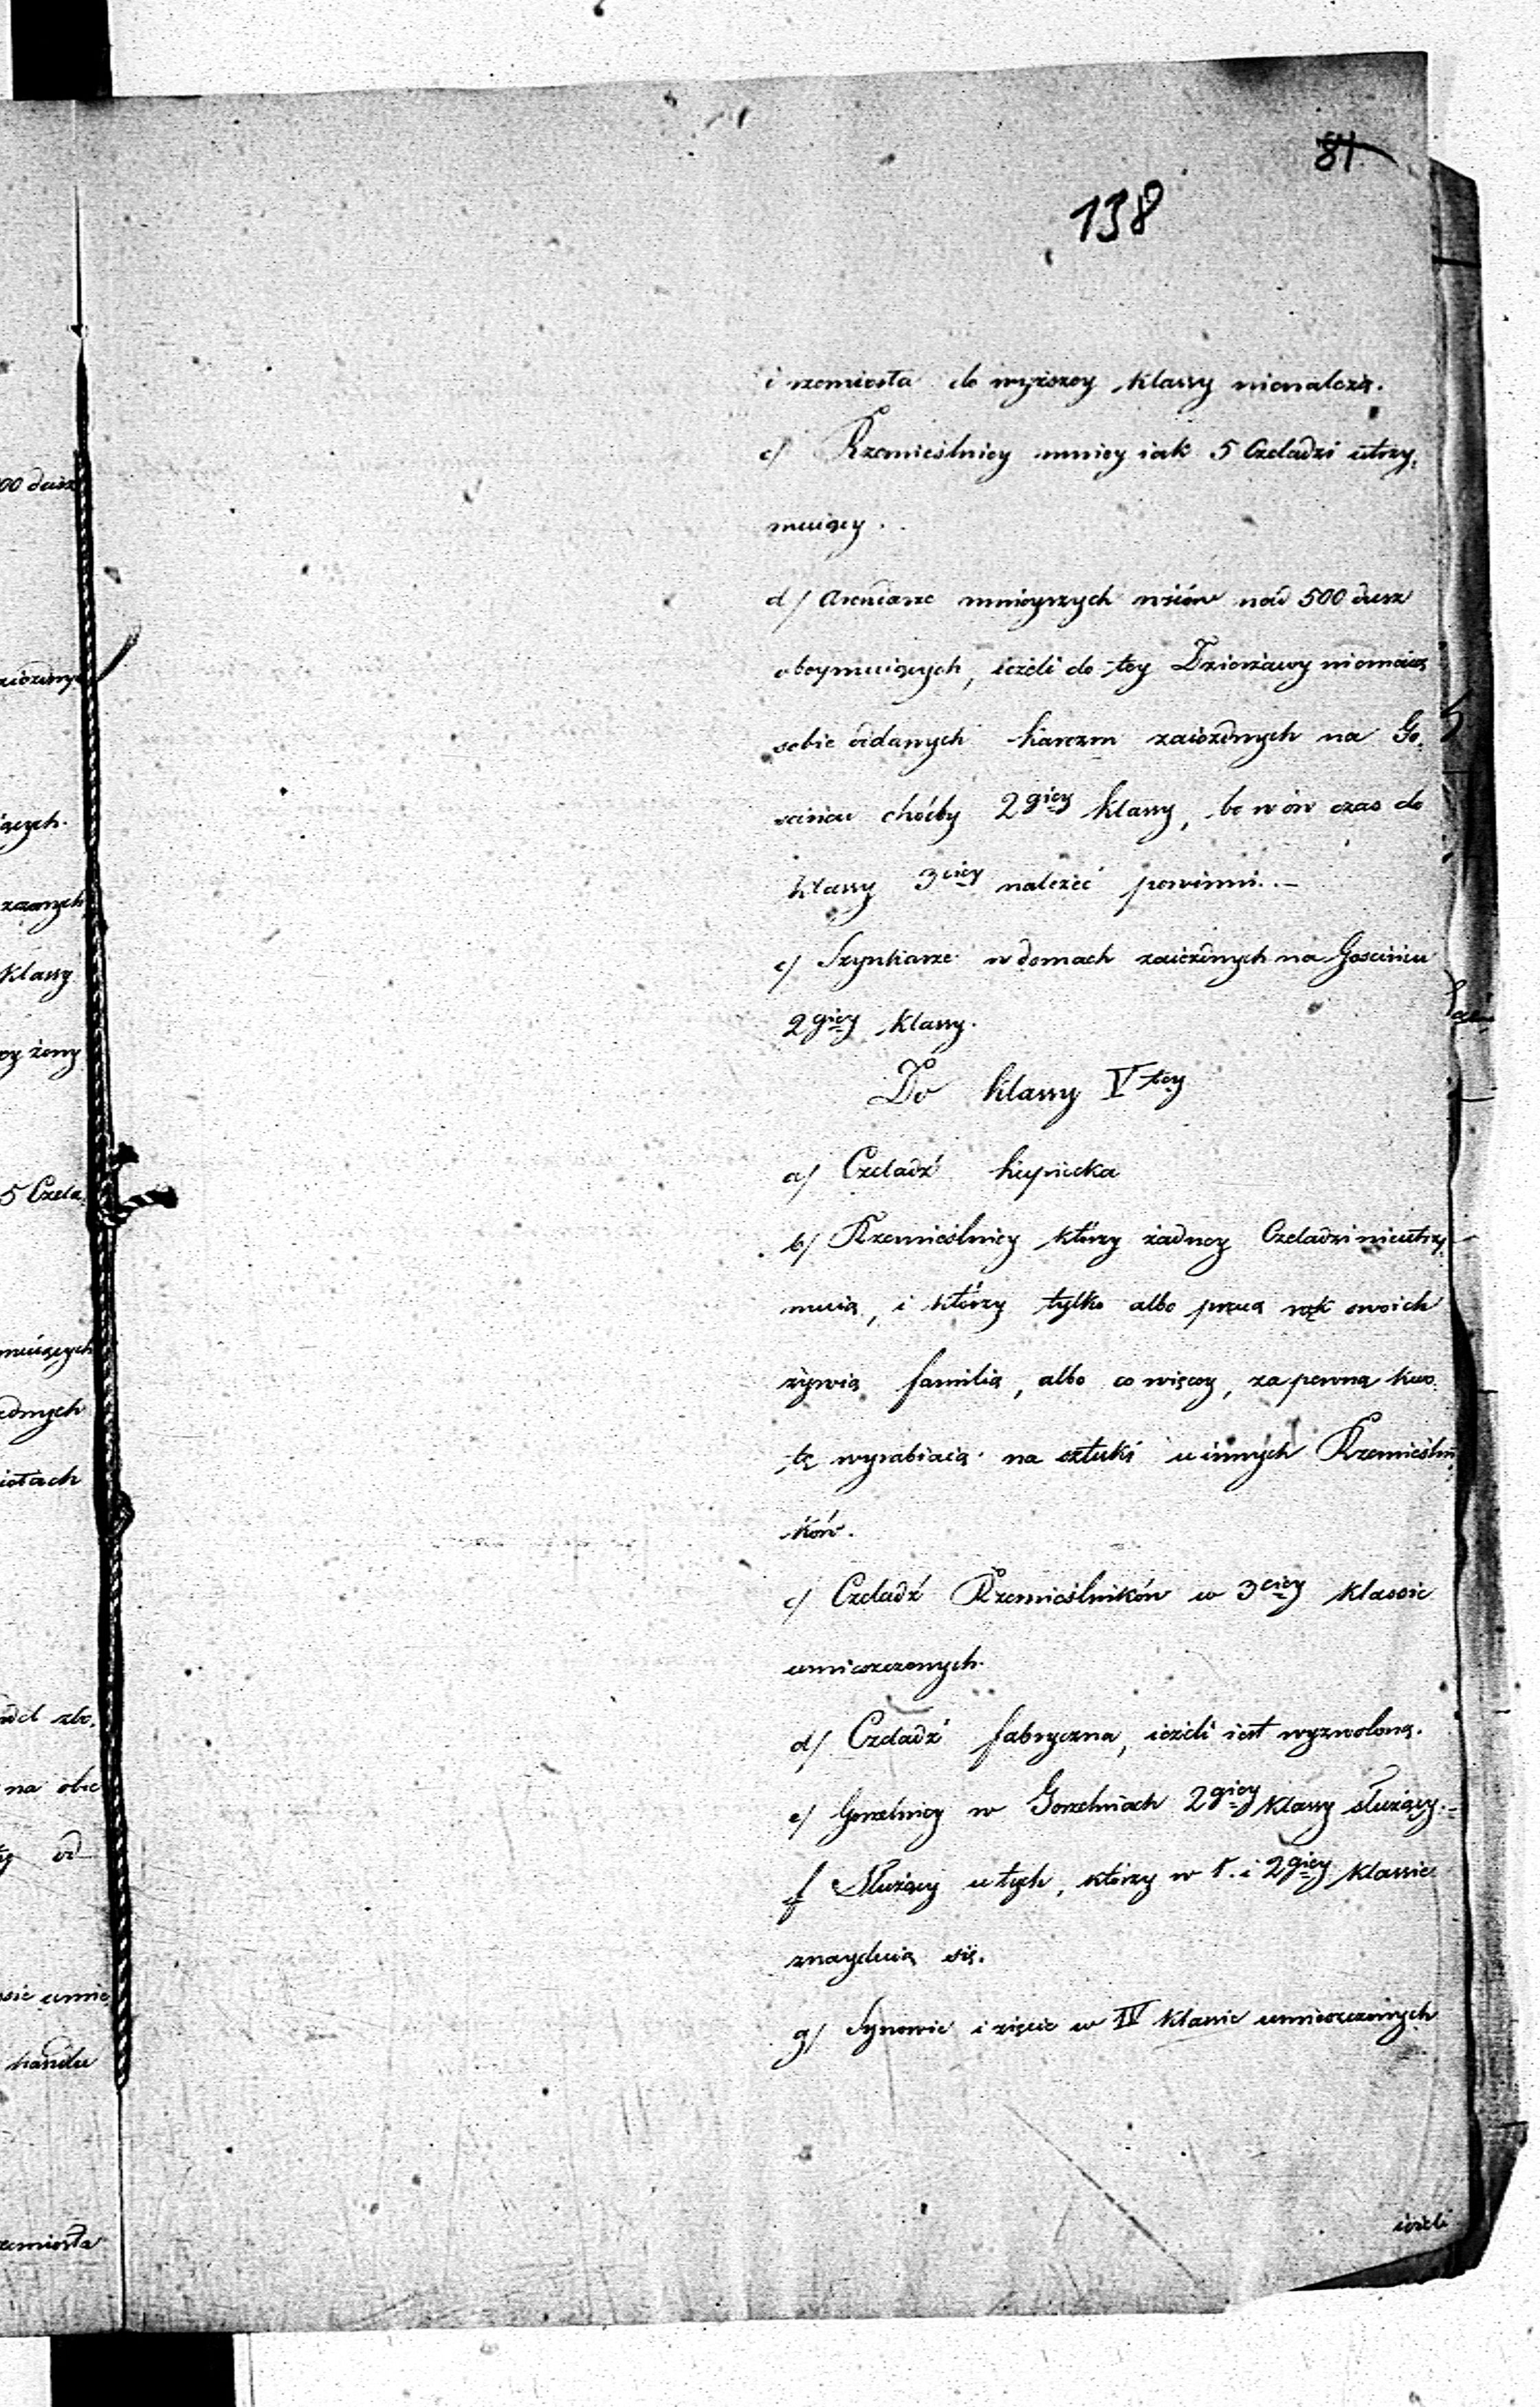 81
138
i rzemiosła do wyższey klassy nienależą.
c/ Rzemieślnicy mniey iak 5 Czeladzi utrzy,
muiący.
d/ Arendarze mnieyszych wsiów nad 500 dusz
obeymuiących, ieżeli do tey Dzierżawy niemaią
sobie oddanych karczm zaiezdnych na Go,
scińcu choćby 2giey klassy, bo w ów czas do
klassy 3ciey należeć powinni. —
e/ Szynkarze w domach zaiezdnych na Gościńcu
2giey klassy.
Do klassy Vtey
a/ Czeladź kupiecka
b/ Rzemieślnicy którzy żadney Czeladzi nieutrzy,
muią, i którzy tylko albo pracą rąk swoich
żywią familią, albo co więcey, za pewną kwo,
tę wyrabiaią na sztuki u innych Rzemieślni
ków.
c/ Czeladź Rzemieślników w 3ciey klassie
umieszczonych.
d/ Czeladź fabryczna, ieżeli iest wyzwolona.
e/ Gorzelnicy w Gorzelniach 2giey klassy służący. -
f Służący u tych, którzy w 1. i 2giey klassie
znayduią się.
g/ Synowie i zięcie w IV klassie umieszczonych
ieżeli
00 dusz
klassy
żeny
5 Czela,
na obie
od
umie
handlu